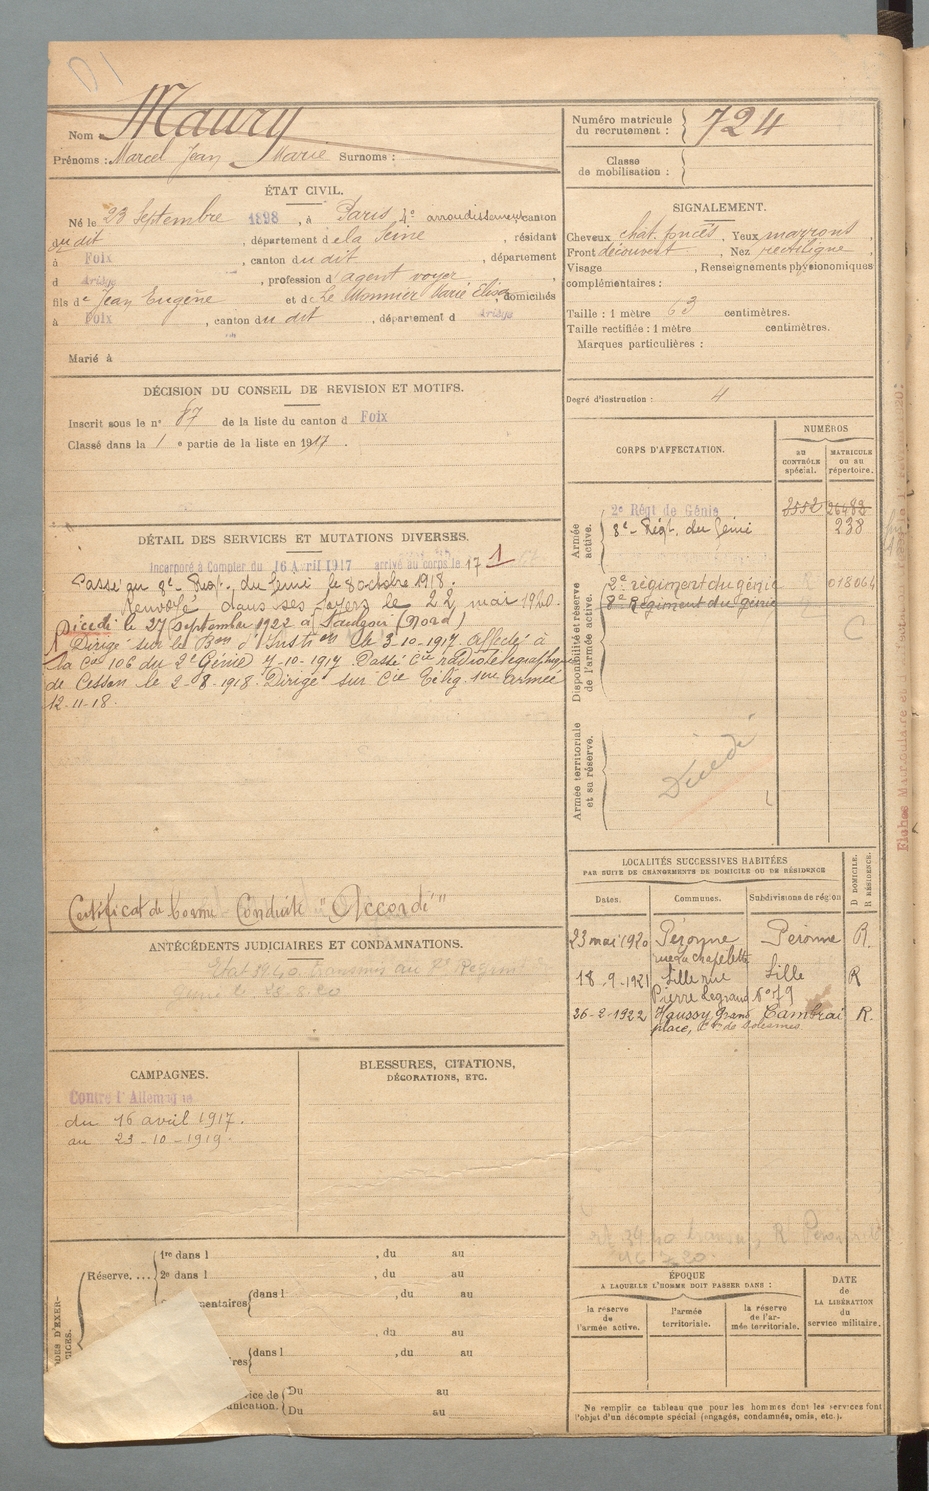 Nom : Maury
Prénoms : Marcel Jean Marie Surnoms :
ÉTAT CIVIL.
Né le 23 Septembre 1898, à Paris, 4e arrondissement canton
du dit, département de la Seine, résidant
à Foix, canton du dit, département
d Ariège, profession d'agent voyer,
fils de Jean Eugène et de Le Monnier Marie Elisa, domiciliés
à Foix, canton du dit, département d Ariège
Marié à
DÉCISION DU CONSEIL DE REVISION ET MOTIFS.
Inscrit sous le n° 87 de la liste du canton d Foix
Classé dans la 1e partie de la liste en 1917.
DÉTAIL DES SERVICES ET MUTATIONS DIVERSES.
Incorporé à Compter du 16 Avril 1917 arrivé au corps le 17
Passé au 8e Régt. du Génie le 8 octobre 1918.
Renvoyé dans ses foyers le 22 mai 1920.
Décédé le 27 Septembre 1922 à (Nord)
Dirigé sur le Bon d'Instron le 3-10-1917 affecté à
la Cie 106 du 2e Génie 7-10-1917. Passé Cie radiotélégraphique
de Cesson le 2-8-1918. Dirigé sur Cie Télég. 1ère armée
12-11-18.
Certificat de bonne Conduite "Accordé"
ANTÉCÉDENTS JUDICIAIRES ET CONDAMNATIONS.
CAMPAGNES.
Contre l'Allemagne
du 16 avril 1917.
au 23-10-1919.
BLESSURES, CITATIONS,
DÉCORATIONS, ETC.
Réserve....
1re dans l , du au
2e dans l , du au
dans l , du au
, du au
dans l , du au
Du au
Du au
Numéro matricule
du recrutement : 724
Classe
de mobilisation :
SIGNALEMENT.
Cheveux chat. foncés, Yeux marrons,
Front découvert, Nez rectiligne,
Visage , Renseignements physionomiques
complémentaires :
Taille : 1 mètre 63 centimètres.
Taille rectifiée : 1 mètre centimètres.
Marques particulières :
Degré d'instruction : 4
CORPS D'AFFECTATION.
NUMÉROS
au
CONTRÔLE
spécial.
MATRICULE
ou au
répertoire.
Armée
active.
2e Régt de Génie 3552 26483
8e Régt. du Génie 238
Disponibilité et réserve
de l'armée active.
2e régiment du génie 018064
8e Régiment du génie
C
Armée territoriale
et sa réserve.
Décédé
LOCALITÉS SUCCESSIVES HABITÉES
PAR SUITE DE CHANGEMENTS DE DOMICILE OU DE RÉSIDENCE
D DOMICILE.
R RÉSIDENCE.
Dates. Communes. Subdivisions de région
23 mai 1920 Péronne Péronne R.
rue la chapelette
18-9-1921 Lille rue Lille R
Pierre Legrand N° 79
26-2-1922 Haussy Grand Cambrai R.
place, Con de Solesmes
ÉPOQUE
A LAQUELLE L'HOMME DOIT PASSER DANS :
la réserve
de
l'armée active.
l'armée
territoriale.
la réserve
de l'ar-
mée territoriale.
DATE
de
LA LIBÉRATION
du
service militaire.
Ne remplir ce tableau que pour les hommes dont les services font
l'objet d'un décompte spécial (engagés, condamnés, omis, etc.).